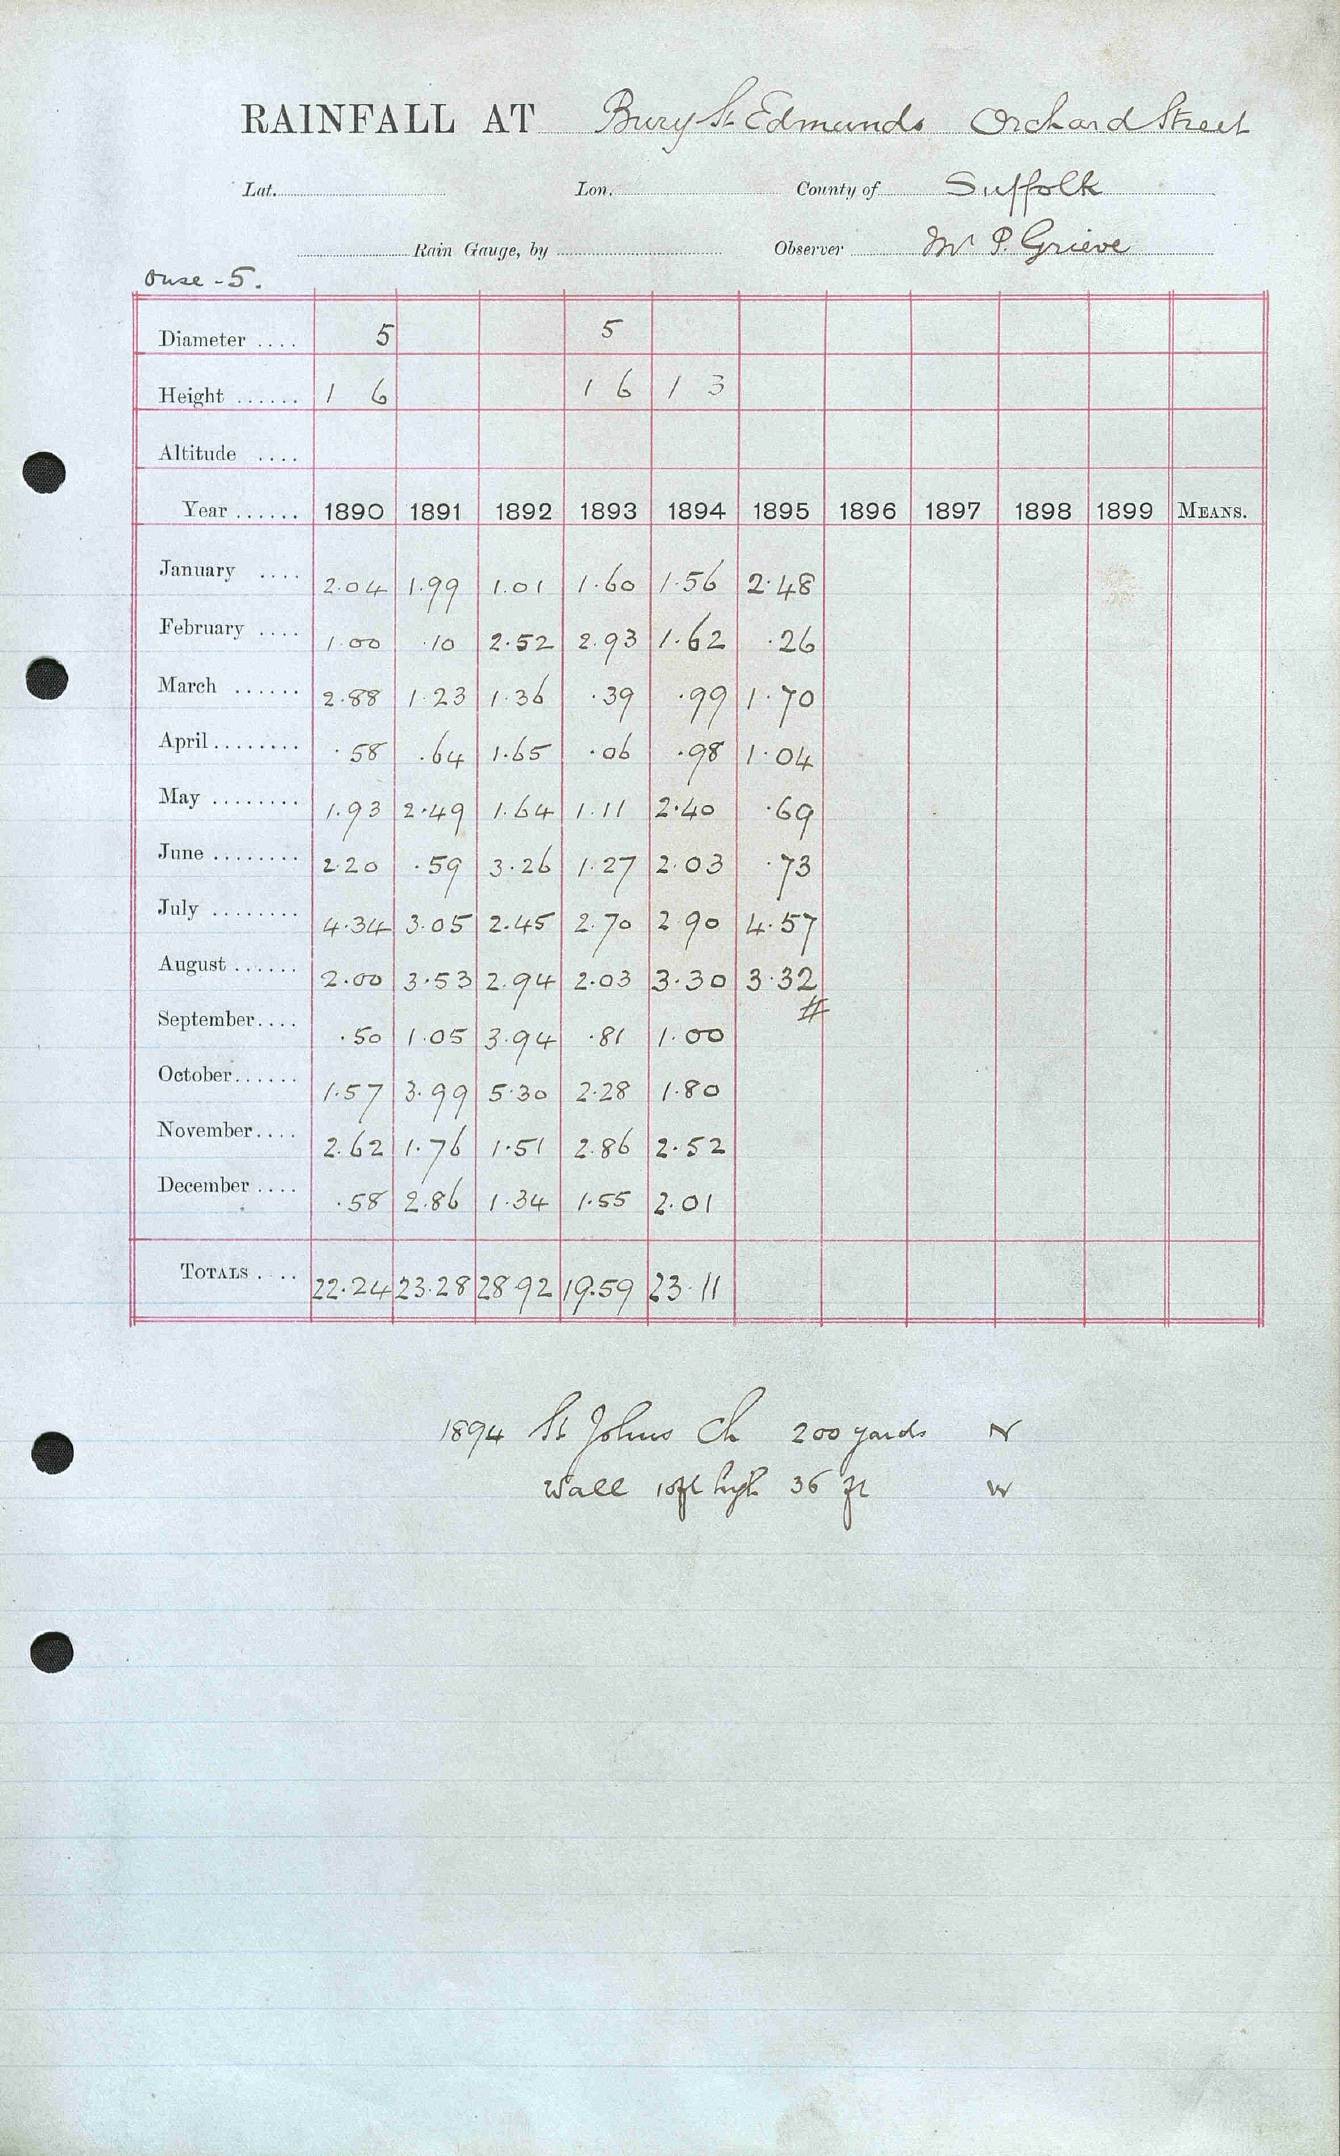 RAINFALL AT Bury St Edmunds Orchard Street
Lat. Lon. County of Suffolk
Rain Gauge, by Observer Mr P. Grieve
Ouse - 5.
Diameter .... 5 5
Height ...... 1 6 1 6 1 3
Altitude ....
Year ...... 1890 1891 1892 1893 1894 1895 1896 1897 1898 1899 MEANS.
January .... 2.04 1.99 1.01 1.60 1.56 2.48
February .... 1.00 .10 2.52 2.93 1.62 .26
March ...... 2.88 1.23 1.36 .39 .99 1.70
April ........ .58 .64 1.65 .06 .98 1.04
May ........ 1.93 2.49 1.64 1.11 2.40 .69
June ........ 2.20 .59 3.26 1.27 2.03 .73
July ........ 4.34 3.05 2.45 2.70 2.90 4.57
August ...... 2.00 3.53 2.94 2.03 3.30 3.32
#
September.... .50 1.05 3.94 .81 1.00
October...... 1.57 3.99 5.30 2.28 1.80
November.... 2.62 1.76 1.51 2.86 2.52
December .... .58 2.86 1.34 1.55 2.01
TOTALS .... 22.24 23.28 28.92 19.59 23.11
1894 St Johns Ch 200 yards N
Wall 10ft high 36 ft W